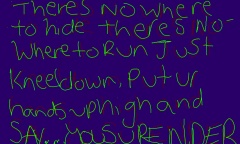 theres nowhere
to hide theres no-
where to run Just
kneel down, Put ur
hands up high and
SAY... YOU SURENDER